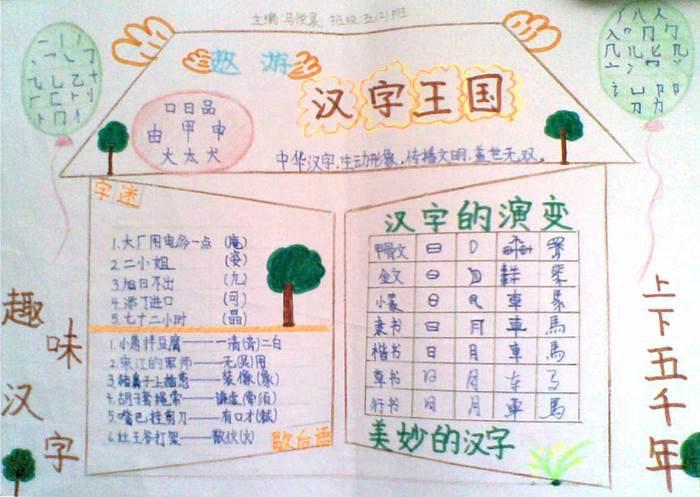 主编:冯悦 班级:五(2)班
遨游
汉字王国
口日品
由甲申
大太犬
中华汉字,生动形象,传播文明,盖世无双。
字迷
1.大厂用电多一点 (庵)
2.二小姐 (姿)
3.旭日不出 (九)
4.添丁进口 (可)
5.七十二小时 (晶)
1.小葱拌豆腐——一清(青)二白
2.宋江的军师——无(吴)用
3.猪鼻子上插葱——装像(象)
4.胡子套绳索——谦虚(牵须)
5.嘴巴挂剪刀——有口才(裁)
6.灶王爷打架——散伙(火)
歇后语
汉字的演变
甲骨文
金文
小篆
隶书 日 月 車 馬
楷书 日 月 車 馬
草书
行书 日 月 車 馬
美妙的汉字
趣味汉字
上下五千年